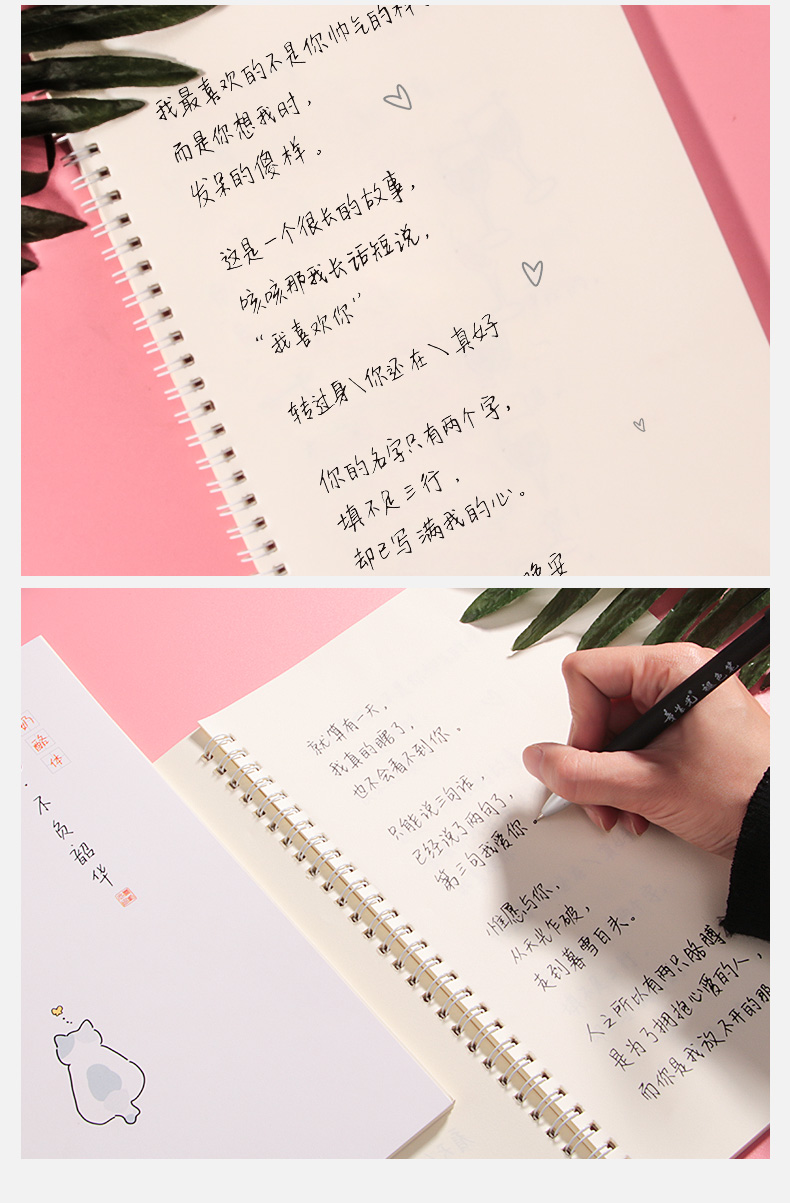 我最喜欢的不是你帅气的样
而是你想我时，
发呆的傻样。
这是一个很长的故事，
咳咳那我长话短说，
“我喜欢你”
转过身\你还在\真好
你的名字只有两个字，
填不足三行，
却已写满我的心。
晚安
奶酪体
不负韶华
就算有一天，
我真的瞎了，
也不会看不到你。
只能说三句话，
已经说了两句了，
第三句我爱你。
惟愿与你，
从天光乍破，
走到暮雪白头。
人之所以有两只胳膊
是为了拥抱心爱的人，
而你是我放不开的那